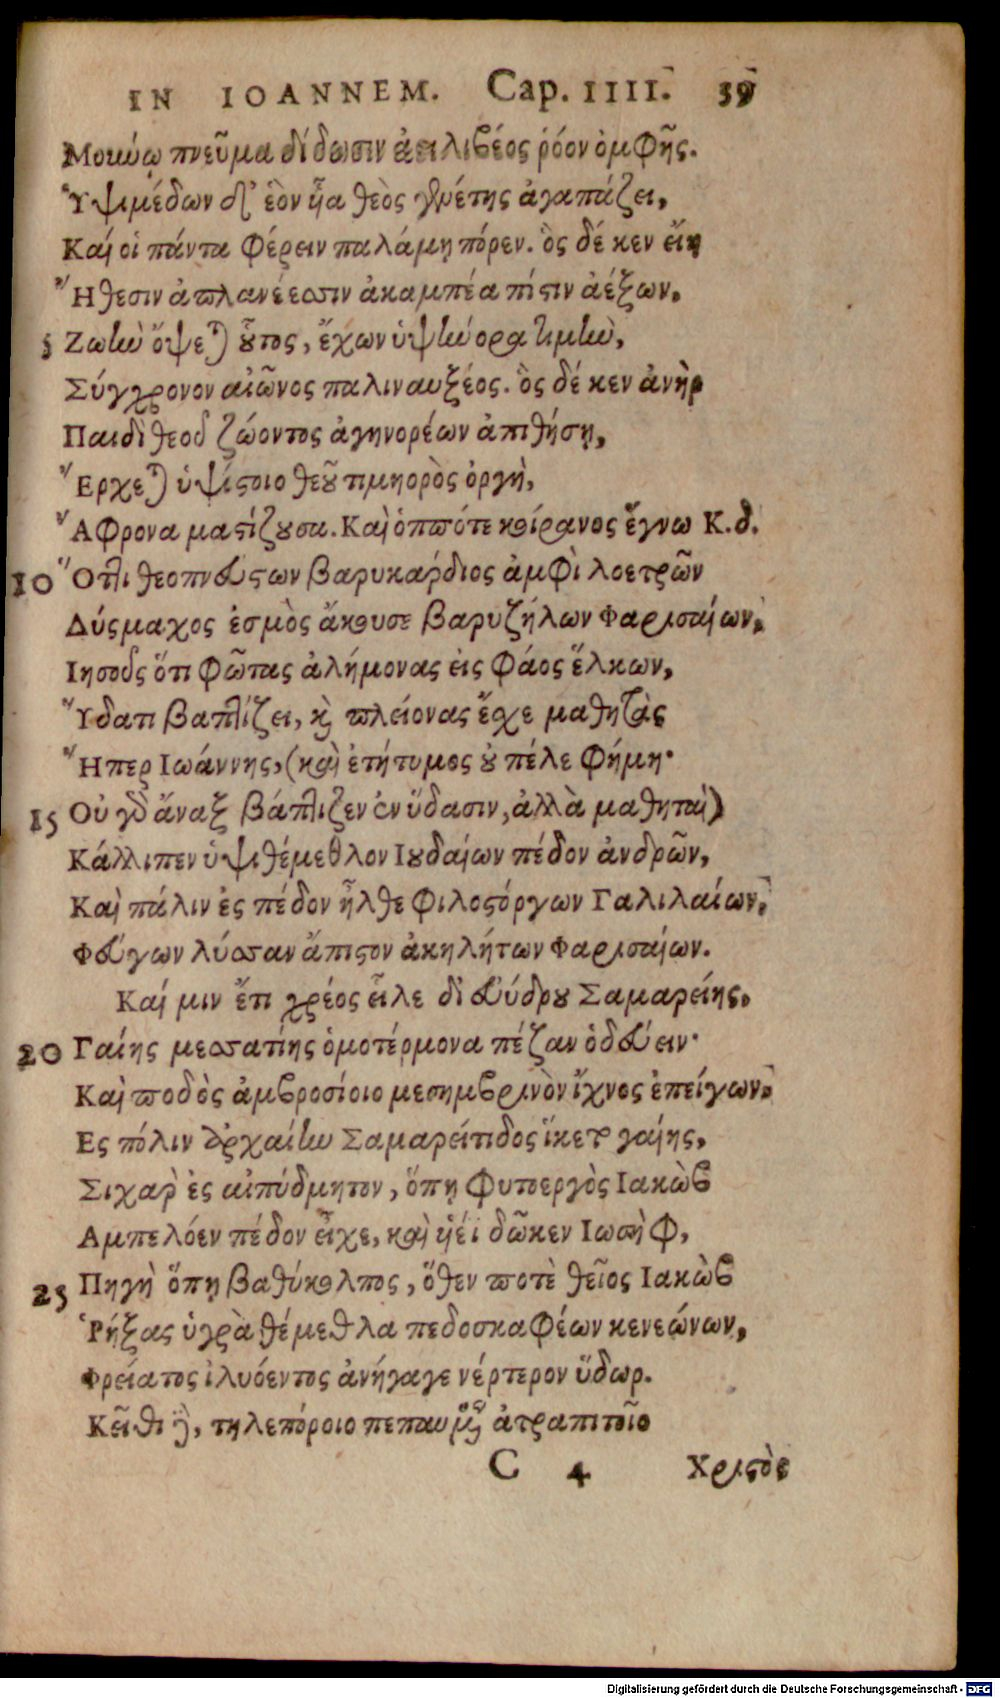 IN IOANNEM. Cap. IIII. 39
Μούνῳ πνεῦμα δίδωσιν ἀειλιβέος ῥόον ὀμφῆς.
Ὑψιμέδων δ' ἑὸν ἧα θεὸς γενέτης ἀγαπάζει,
Καί οἱ πάντα φέρειν παλάμῃ πόρεν. ὃς δέ κεν εἴη
Ἤθεσιν ἀπλανέεσσιν ἀκαμπέα πίστιν ἀέξων,
5 Ζωὴν ὄψεται οὗτος, ἔχων ὑψήνορα τιμὴν,
Σύγχρονον αἰῶνος παλιναυξέος. ὃς δέ κεν ἀνὴρ
Παιδὶ θεοῦ ζώοντος ἀγηνορέων ἀπιθήσῃ,
Ἔρχεται ὑψίστοιο θεοῦ τιμηορὸς ὀργὴ,
Ἄφρονα μαστίζουσα. Καὶ ὁππότε κοίρανος ἔγνω Κ.δ.
10 Ὅττι θεοπνεύστων βαρυκάρδιος ἀμφὶ λοετρῶν
Δύσμαχος ἑσμὸς ἄκουσε βαρυζήλων Φαρισαίων,
Ιησοῦς ὅτι φῶτας ἀλήμονας εἰς φάος ἕλκων,
Ὕδατι βαπτίζει, καὶ πλείονας ἔσχε μαθητὰς
Ἤπερ Ιωάννης, (καὶ ἐτήτυμος οὐ πέλε φήμη·
15 Οὐ γὰρ ἄναξ βάπτιζεν ἐν ὕδασιν, ἀλλὰ μαθηταὶ)
Κάλλιπεν ὑψιθέμεθλον Ιουδαίων πέδον ἀνδρῶν,
Καὶ πάλιν ἐς πέδον ἦλθε φιλοστόργων Γαλιλαίων,
Φεύγων λύσσαν ἄπιστον ἀκηλήτων Φαρισαίων.
Καί μιν ἔτι χρέος εἷλε δι' εὐύδρου Σαμαρείης,
20 Γαίης μεσσατίης ὁμοτέρμονα πέζαν ὁδεύειν·
Καὶ ποδὸς ἀμβροσίοιο μεσημβρινὸν ἴχνος ἐπείγων,
Ες πόλιν ἀρχαίην Σαμαρείτιδος ἵκετο γαίης,
Σιχαρ̀ ἐς αἰπύδμητον, ὅπῃ φυτοεργὸς Ιακὼβ
Αμπελόεν πέδον εἶχε, καὶ ἡέϊ δῶκεν Ιωσὴφ,
25 Πηγὴ ὅπῃ βαθύκολπος, ὅθεν ποτὲ θεῖος Ιακὼβ
Ῥήξας ὑγρὰ θέμεθλα πεδοσκαφέων κενεώνων,
Φρείατος ἰλυόεντος ἀνήγαγε νέρτερον ὕδωρ.
Κεῖθι τηλεπόροιο πεπαυμένος ἀτραπιτοῖο
C 4 Χριστὸς
Digitalisierung gefördert durch die Deutsche Forschungsgemeinschaft - DFG